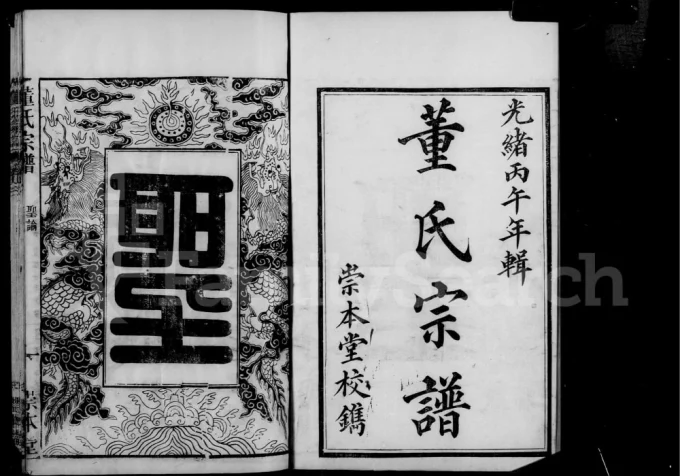 光緒丙午年輯
董氏宗譜
崇本堂校鐫
聖
董氏宗譜
聖諭
崇本堂
FamilySearch